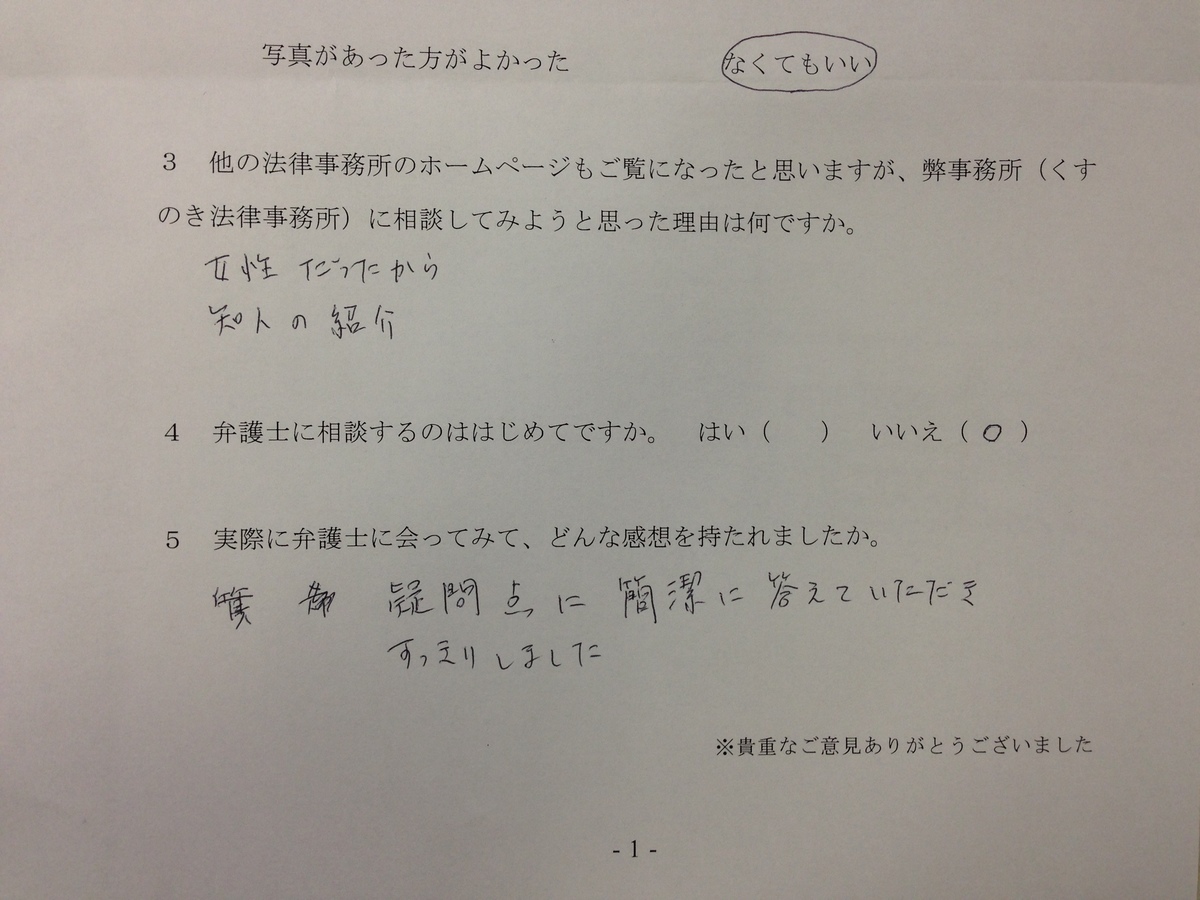 写真があった方がよかった　なくてもいい
３　他の法律事務所のホームページもご覧になったと思いますが、弊事務所（くす
のき法律事務所）に相談してみようと思った理由は何ですか。
女性だったから
知人の紹介
４　弁護士に相談するのははじめてですか。　はい（　　）　いいえ（○）
５　実際に弁護士に会ってみて、どんな感想を持たれましたか。
疑問点に簡潔に答えていただき
すっきりしました
※貴重なご意見ありがとうございました
- 1 -